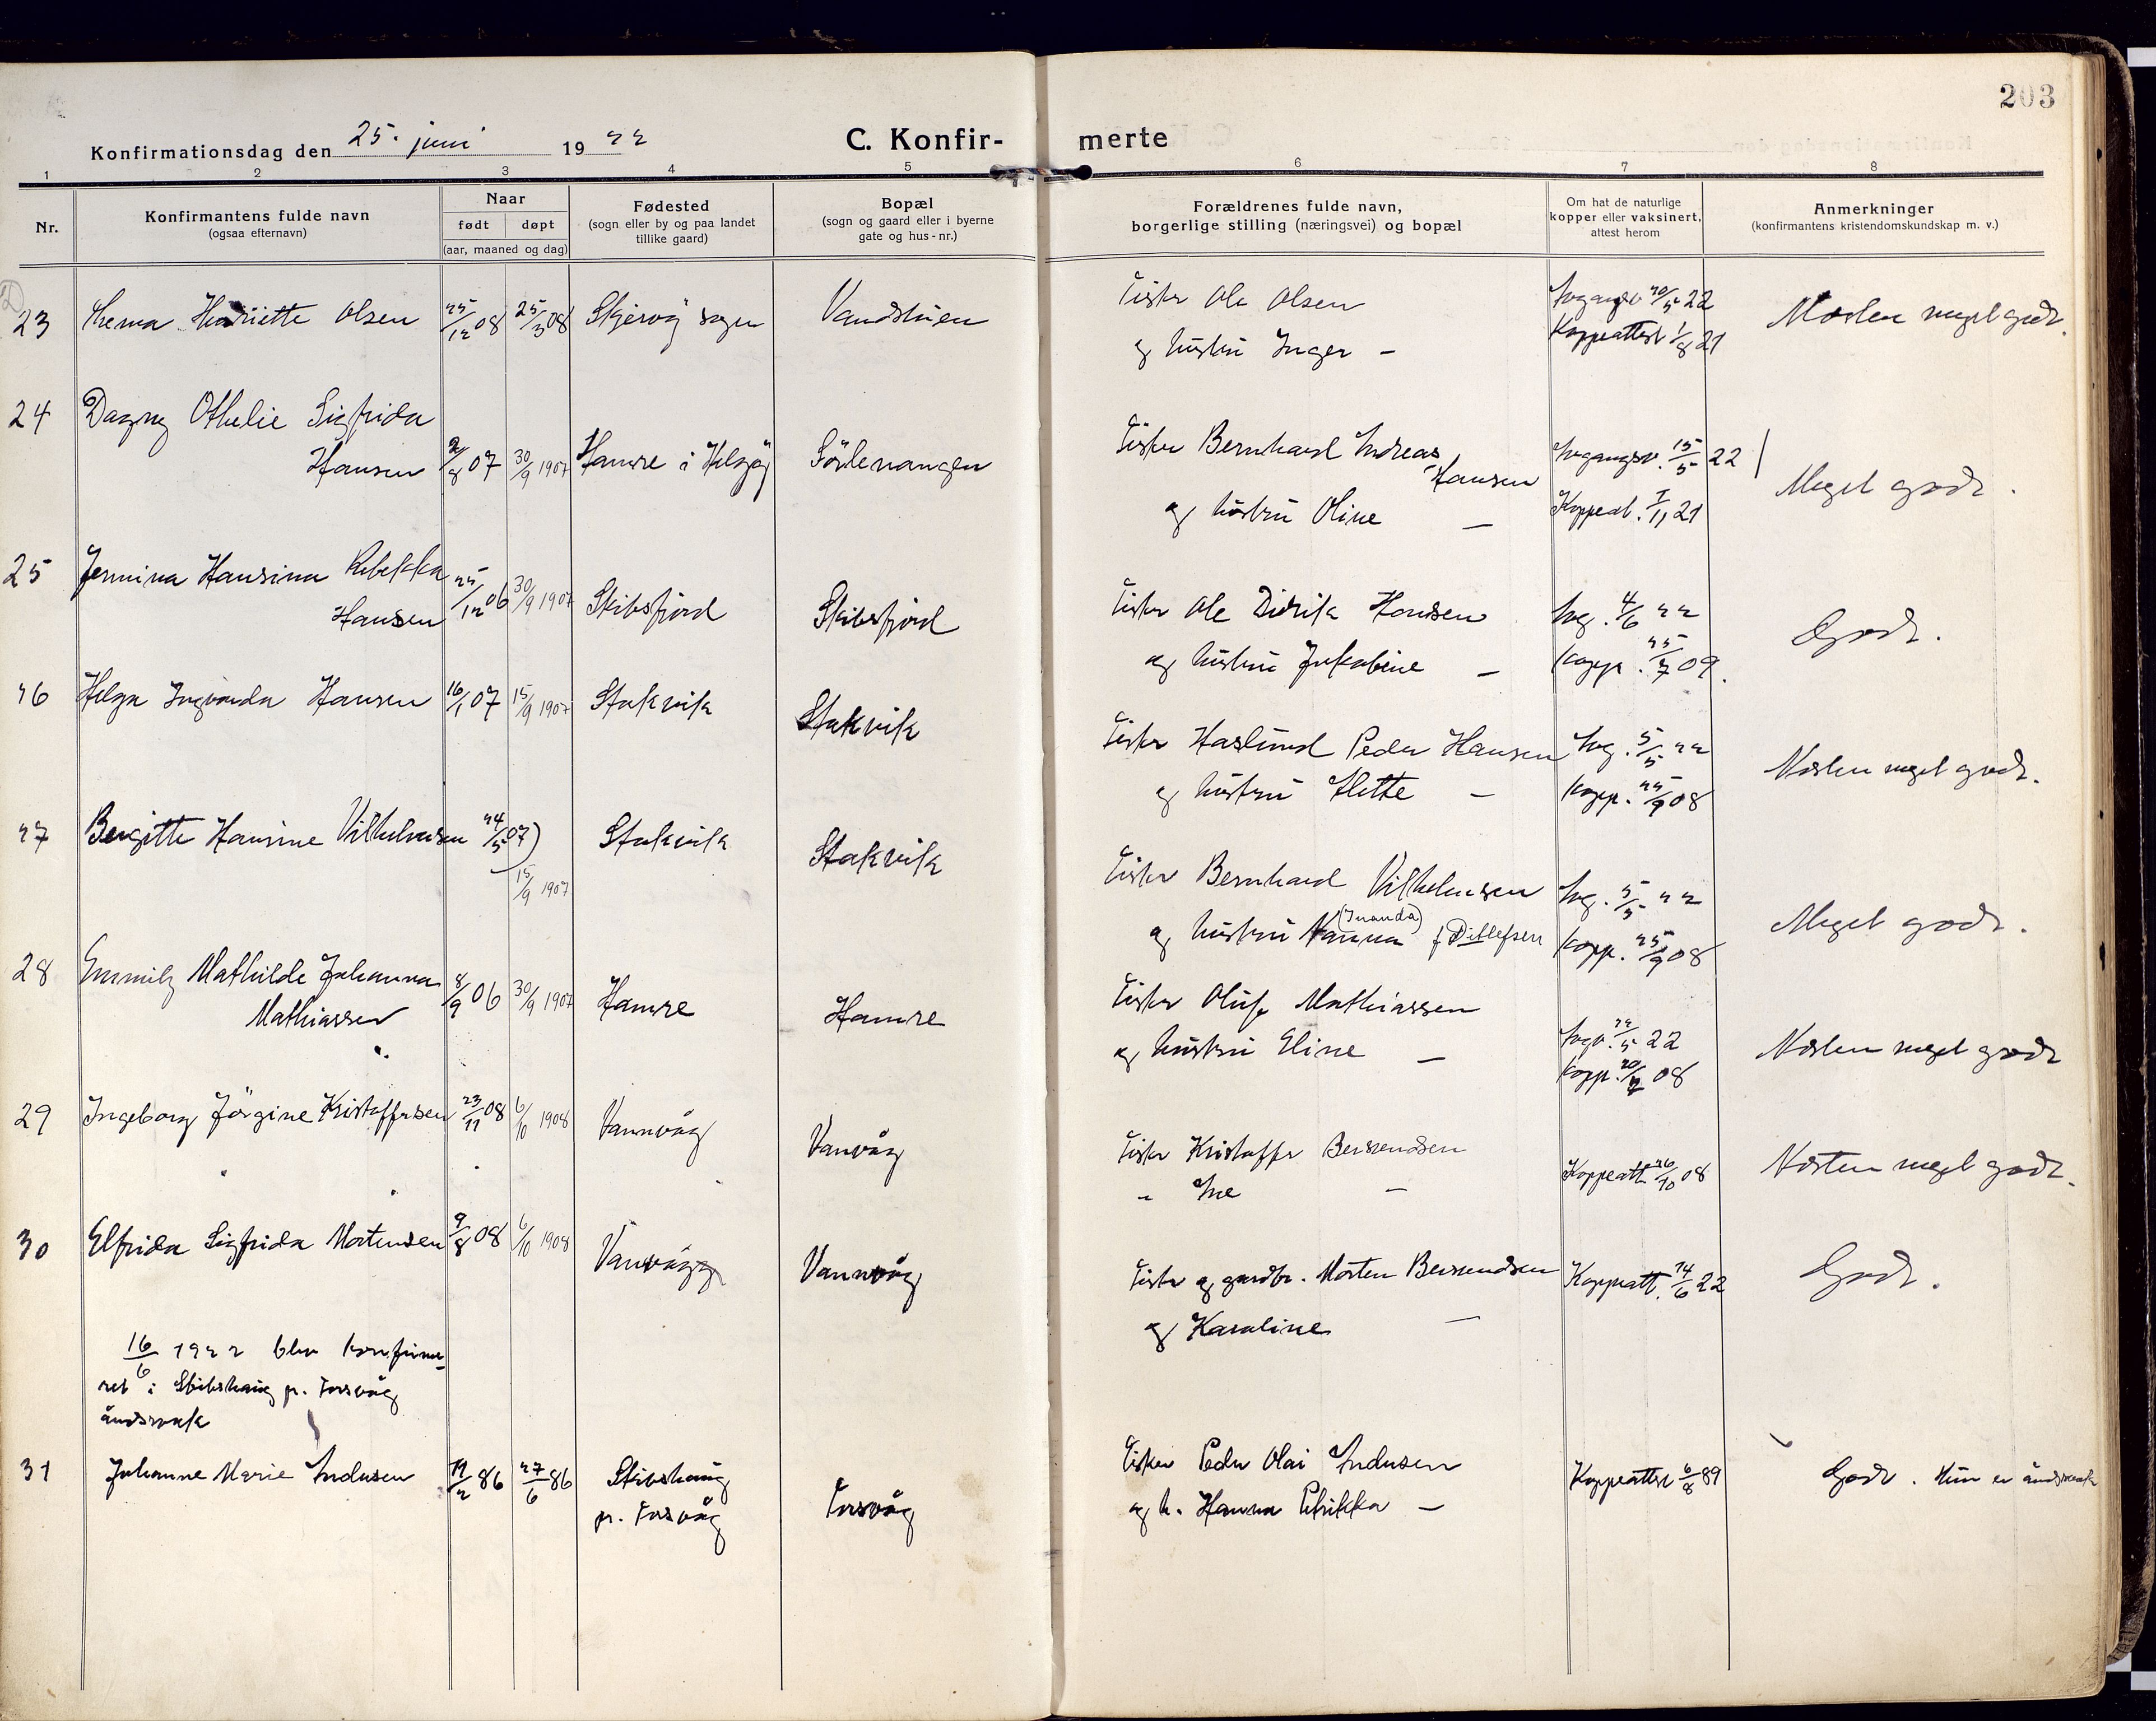 203
Konfirmationsdag den 25. juni 1922
C. Konfirmerte
1 2 3 4 5 6 7 8
Nr.
Konfirmantens fulde navn
(ogsaa efternavn)
Naar
født døpt
(aar, maaned og dag)
Fødested
(sogn eller by og paa landet
tillike gaard)
Bopæl
(sogn og gaard eller i byerne
gate og hus-nr.)
Forældrenes fulde navn,
borgerlige stilling (næringsvei) og bopæl
Om hat de naturlige
kopper eller vaksinert,
attest herom
Anmerkninger
(konfirmantens kristendomskundskap m. v.)
23 Henriette Olsen 25/12 08 25/3 08 Skjervöj sogn Fisker Ole Olsen 20/5 22 Næsten meget godt.
og hustru Inger — Koppeattest 1/8 21
24 Dagny Othelie Sigfrida
Hansen 2/8 07 30/9 1907 Hamre i Helgöj Sörlenangen Fisker Bernhard Andreas Hansen 15/5 22 Meget godt.
og hustru Oline — Koppeat. 7/11 21
25 Jermina Hansina Rebekka
Hansen 25/12 06 30/9 1907 Skibsfjord Skibsfjord Fisker Ole Didrik Hansen 4/6 22 Godt.
og hustru Jakobine — Kopp. 25/7 09.
26 Helga Ingvarda Hansen 16/1 07 15/9 1907 Stakvik Stakvik Fisker Haslund Peder Hansen 5/5 22 Næsten meget godt.
og hustru — Kopp. 25/9 08
27 Bergitte Hansine Vilhelmsen 24/5 07) 15/9 1907 Stakvik Stakvik Fisker Bernhard Vilhelmsen 5/5 22 Meget godt.
og hustru Nanna (Inanda) f Ditlefsen Kopp. 25/9 08
28 Emmily Mathilde Johanna
Mathiassen 8/9 06 30/9 1907 Hamre Hamre Fisker Oluf Mathiassen 22/5 22 Næsten meget godt
og hustru Eline — Kopp. 08
29 Ingeborg Jörgine Kristoffersen 23/11 08 6/10 1908 Vannvåg Vanvåg Fisker Kristoffer Berntsen Koppeatt. 26/10 08 Næsten meget godt.
" Ane —
30 Elfrida Sigfrida Mortensen 9/8 08 6/10 1908 Vanvåg Vannvåg Fisker og gardbr. Morten Koppeatt. 14/6 22 Godt.
og Karoline —
16/6 1922 blev konfirme-
ret i Skibshaug pr. Torsvåg
åndssvak
31 Johanne Marie Andersen 19/2 86 27/6 86 Skibshaug
pr. Torsvåg Torsvåg Fisker Peder Olai Andersen Koppeattest 6/8 89 Godt. Hun er åndssvak
og h. Hanna Petrikka —